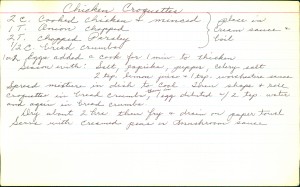 Chicken Croquettes
2 C. Cooked chicken & minced } place in
1 T. Onion chopped } Cream sauce &
2 T. Chopped Parsley } boil
1/2 C. bread crumbs
1 or 2 Eggs added & cook for 1 min to thicken
Season with: Salt, paprika, pepper, celery salt
2 tsp lemon juice & 1 tsp. worchestire sauce
Spread mixture in dish to Cool. Then shape & roll
croquettes in bread crumbs, 1 egg diluted w/ 2 tsp water
and again in bread crumbs.
Dry about 2 hrs then fry & drain on paper towel
Serve with creamed peas or mushroom sauce